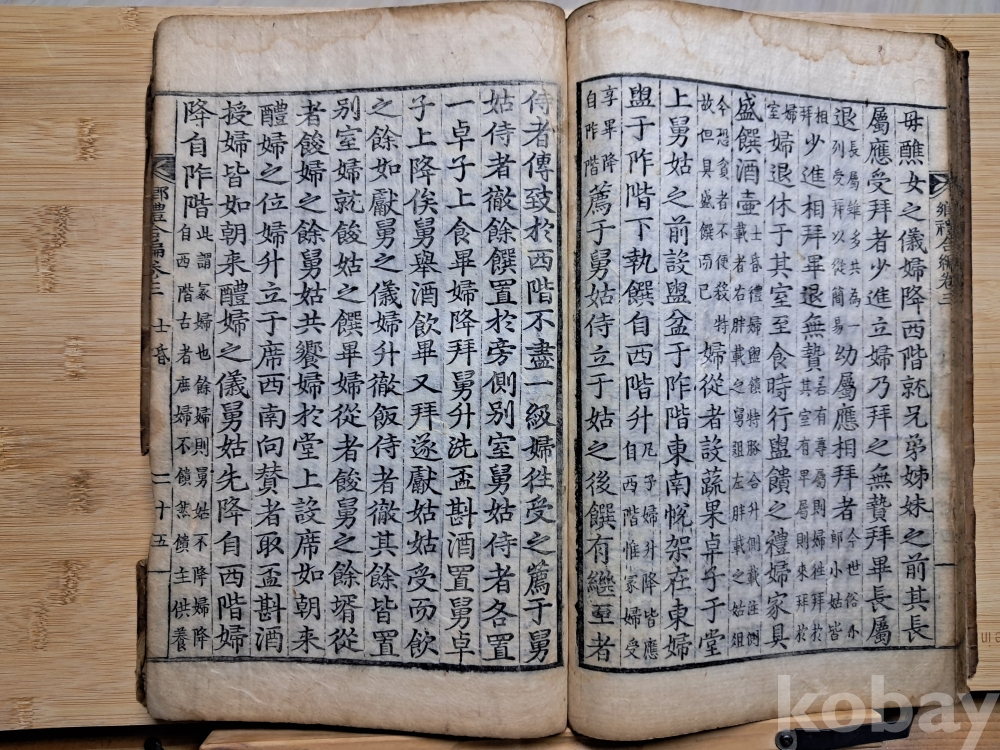 母醮女之儀婦降西階就兄弟姊妹之前其長
屬應受拜者少進立婦乃拜之無贄拜畢長屬
退長屬雖多共為一列受拜以從簡易幼屬應相拜者今世俗小郎小姑皆
相拜少進相拜畢退無贄若有尊屬則婦往拜於其室有卑屬則來拜於
婦室婦退休于其室至食時行盥饋之禮婦家具
盛饌酒壺士昏禮婦盥饋特豚合升側載注側載者右胖載之舅俎左胖載之姑俎
今想貧者不便殺特故但具盛饌而已婦從者設蔬果卓子于堂
上舅姑之前設盥盆于阼階東南帨架在東婦
盥于阼階下執饌自西階升凡子婦升降皆應自西階惟冢婦受
享畢降自阼階薦于舅姑侍立于姑之後饌有繼至者
鄕礼合編卷三
侍者傳致於西階不盡一級婦往受之薦于舅
姑侍者徹餘饌置於旁側別室舅姑侍者各置
一卓子上食畢婦降拜舅升洗盃斟酒置舅卓
子上降俟舅舉酒飲畢又拜遂獻姑姑受而飲
之餘如獻舅之儀婦升徹飯侍者徹其餘皆置
別室婦就餕姑之饌畢婦從者餕舅之餘壻從
者餕婦之餘舅姑共饗婦於堂上設席如朝來
醴婦之位婦升立于席西南向贊者取盃斟酒
授婦皆如朝來醴婦之儀舅姑先降自西階婦
降自阼階此謂冢婦也餘婦則舅姑不降婦降自西階古者庶婦不饋然饋主供養
鄕禮合編卷三 士昏 二十五
kobay